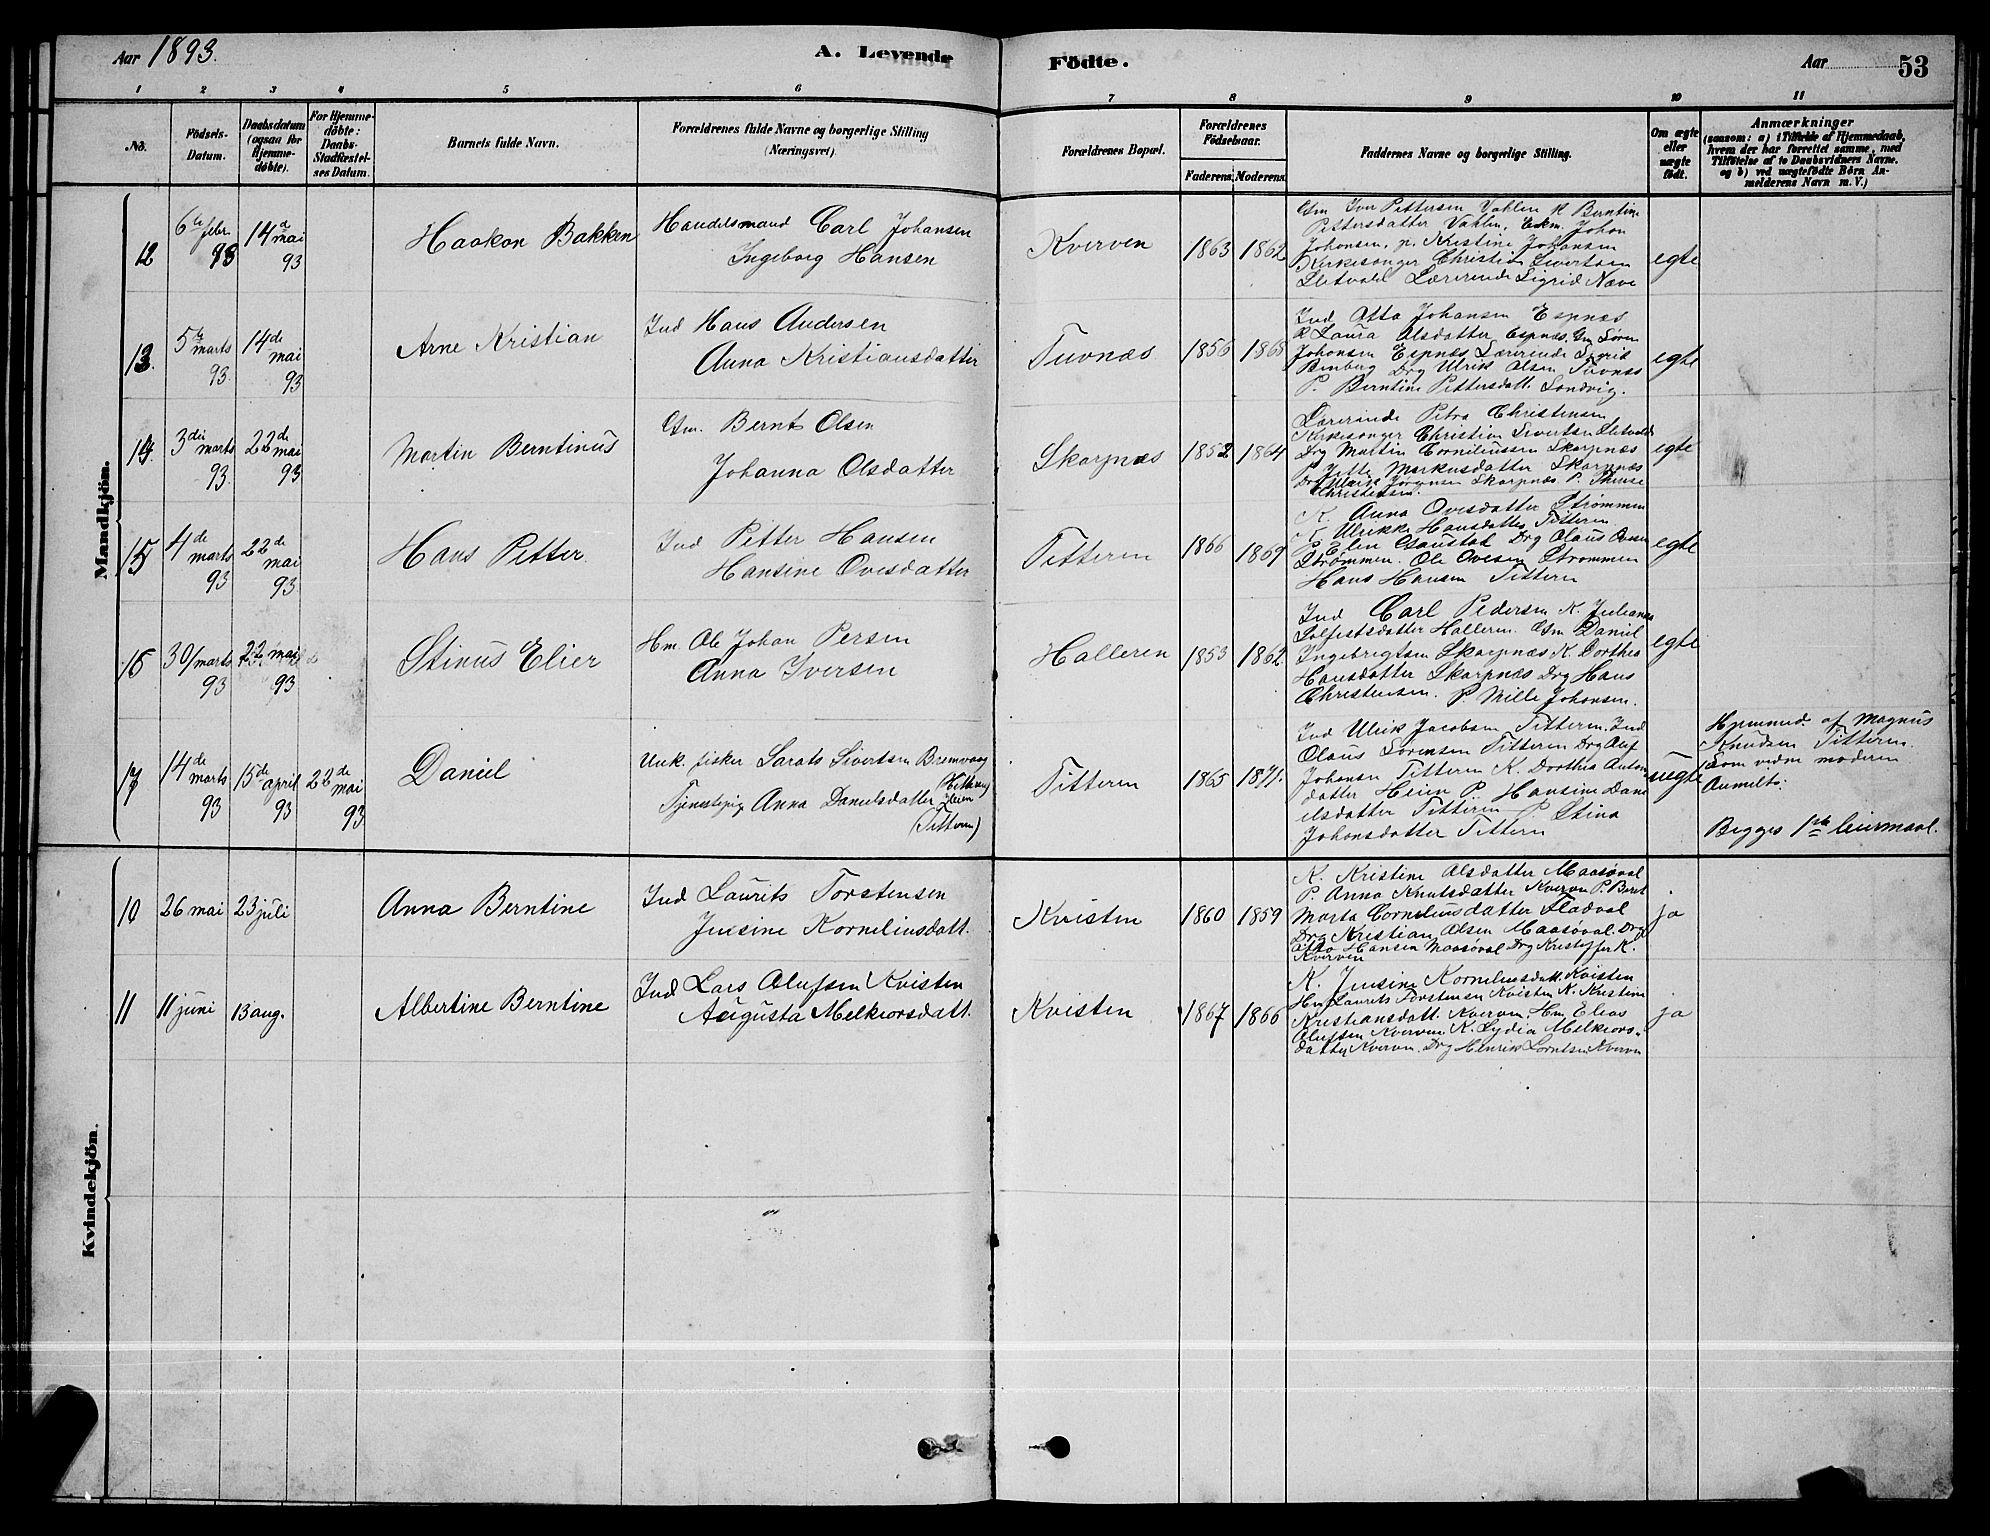 Aar 1893.
A. Levende
Födte.
Aar
53
1 2 3 4 5 6 7 8 9 10 11
No.
Födsels-
Datum.
Daabsdatum
(ogsaa for
Hjemme-
döbte).
For Hjemme-
döbte:
Daabs-
Stadfæstel-
ses Datum.
Barnets fulde Navn.
Forældrenes fulde Navne og borgerlige Stilling
(Næringsvei).
Forældrenes Bopæl.
Forældrenes
Födselsaar.
Faderens. Moderens.
Faddernes Navne og borgerlige Stilling.
Om ægte
eller
uægte
födt.
Anmærkninger
(saasom: a) i Tilfælde af Hjemmedaab,
hvem der har forrettet samme, med
Tilföielse af to Daabsvidners Navne.
og b) ved uægtefödte Börn An-
melderens Navn m. V.)
Mandkjön.
12
6te febr.
93
14de
mai
93
Haakon Bakken
Handelsmand Carl Johansen
Ingeborg Hansen
Kverven
1863 1862
Gm Iver Pettersen Vahlen K Berntine
Pettersdatter Vahlen, Ekm. Johan
Johansen, p. Kristine Johansen
Kirkesanger Christian Sivertsen
Sletvold Lærerinde Sigrid Næve
egte
13.
5te
marts
93.
14de
mai
93
Arne Kristian
Ind Hans Andersen
Anna Kristiansdatter
Tuvnæs
1856 1868
Ind Otto Johansen Espnæs
K Laura Olsdatter Espnæs. Gm Sören
Johansen Espnæs Lærerinde Sigrid
Drg Ulrik Olsen Tuvnæs
P. Berntine Pettersdatt. Sandvig.
egte
14.
3die
marts
93.
22de
mai
93
Martin Berntinus
Gm. Bernt Olsen
Johanna Olsdatter
Skarpnæs
1852 1864
Lærerinde Petra Christensen
Kirkesanger Christian Sivertsen Sletvold
Drg Martin Corneliussen Skarpnæs
P. Jette Markusdatter Skarpnæs
Drg Ulrik Jörgensen Skarpnæs P.
Christensen.
egte
15
4de
marts
93
22de
mai
93
Hans Petter
Ind Petter Hansen
Hansine Ovesdatter
Titteren
1866 1869
K. Anna Ovesdatter Strömmen
K Ulrikke Hansdatter Titteren
P Elen Gaustad Drg Olaus Ovesen
Strömmen. Ole Ovesen Strömmen
Hans Hansen Titteren
egte
16
30/marts
93
22 mai
93
Stinus Elier
Hm. Ole Johan Persen
Anna Iversen
Halleren
1853 1862
Ind Carl Pedersen K. Juliana
Halleren. Gm Daniel
Ingebrigtsen Skarpnæs K. Dorthea
Hansdatter Skarpnæs Drg Hans
Christensen. P. Mille Johansen.
egte
17
14de
marts
93
15de
april
93
22de
mai
93
Daniel
Unk. fisker Sivertsen Bremvaag
(Hitteren)
Tjenestepig Anna Danielsdatter Heien
(Titteren)
Titteren
1865 1871.
Ind Ulrik Jacobsen Titteren. Ind
Olaus Sörensen Titteren Drg Oluf
Johansen Titteren K. Dorthea Anton
datter Heien P. Hansine Dani
elsdatter Titteren P. Stina
Johansdatter Titteren
uegte
Hjemmed af Magnus
Knudsen Titteren.
Som vedre moderen
Anmeldt:
Begges 1ste leiermaal.
Kvindekjön.
10
26 mai
23 juli
Anna Berntine
Ind Laurits Torstensen
Jensine Korneliusdatt.
Kvisten
1860 1859
K. Kristine Olsdatter Maasöval
P. Anna Knutsdatter Kverven P. Beret
Marta Corneliusdatter Fladval
Drg Kristian Olsen Maasöval. Drg
Otto Hansen Maasöval Drg Kristoffer K.
Kverven
ja
11
11 juni
13 aug.
Albertine Berntine
Ind Lars Olufsen Kvisten
Augusta Melkiorsdatt.
Kvisten
1867 1866
K. Jensine Korneliusdatt. Kvisten
Hm Laurets Torstensen Kvisten K. Kristine
Kristiansdatt. Kverven Hm. Elias
Olufsen Kverven K. Lydia Melkiors-
datter Kverven. Drg Henrik Lorntsen Kverven
ja